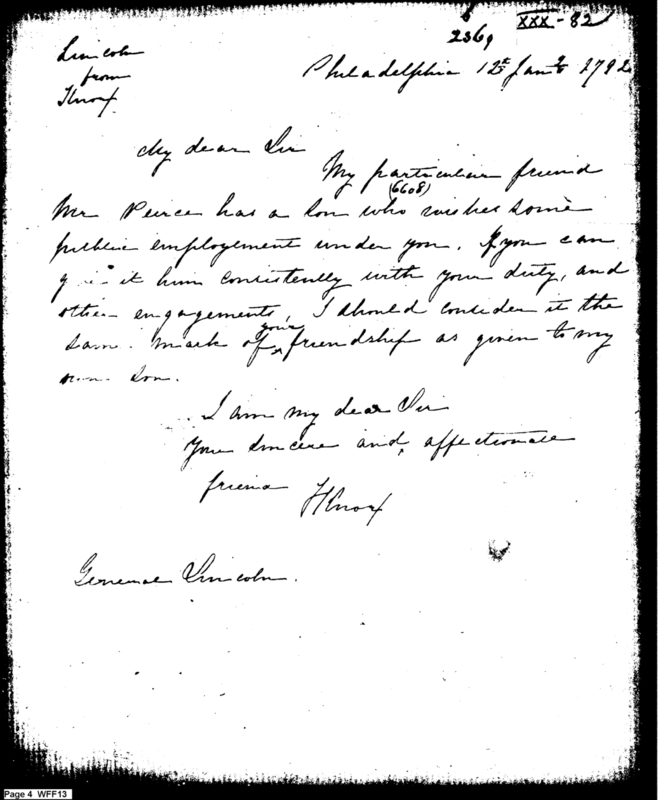 XXX - 82
Lincoln
from
Knox
Philadelphia 12th Jany 1792
My dear Sir
My particular friend
(6608)
Mr Peirce has a son who wishes some
public employement under you. If you can
it him consistently with your duty, and
other engagements, I should consider it the
same mark of your friendship as given to my
own son.
I am my dear Sir
Your sincere and affectionate
friend
HKnox
General Lincoln.
Page 4 WFF13